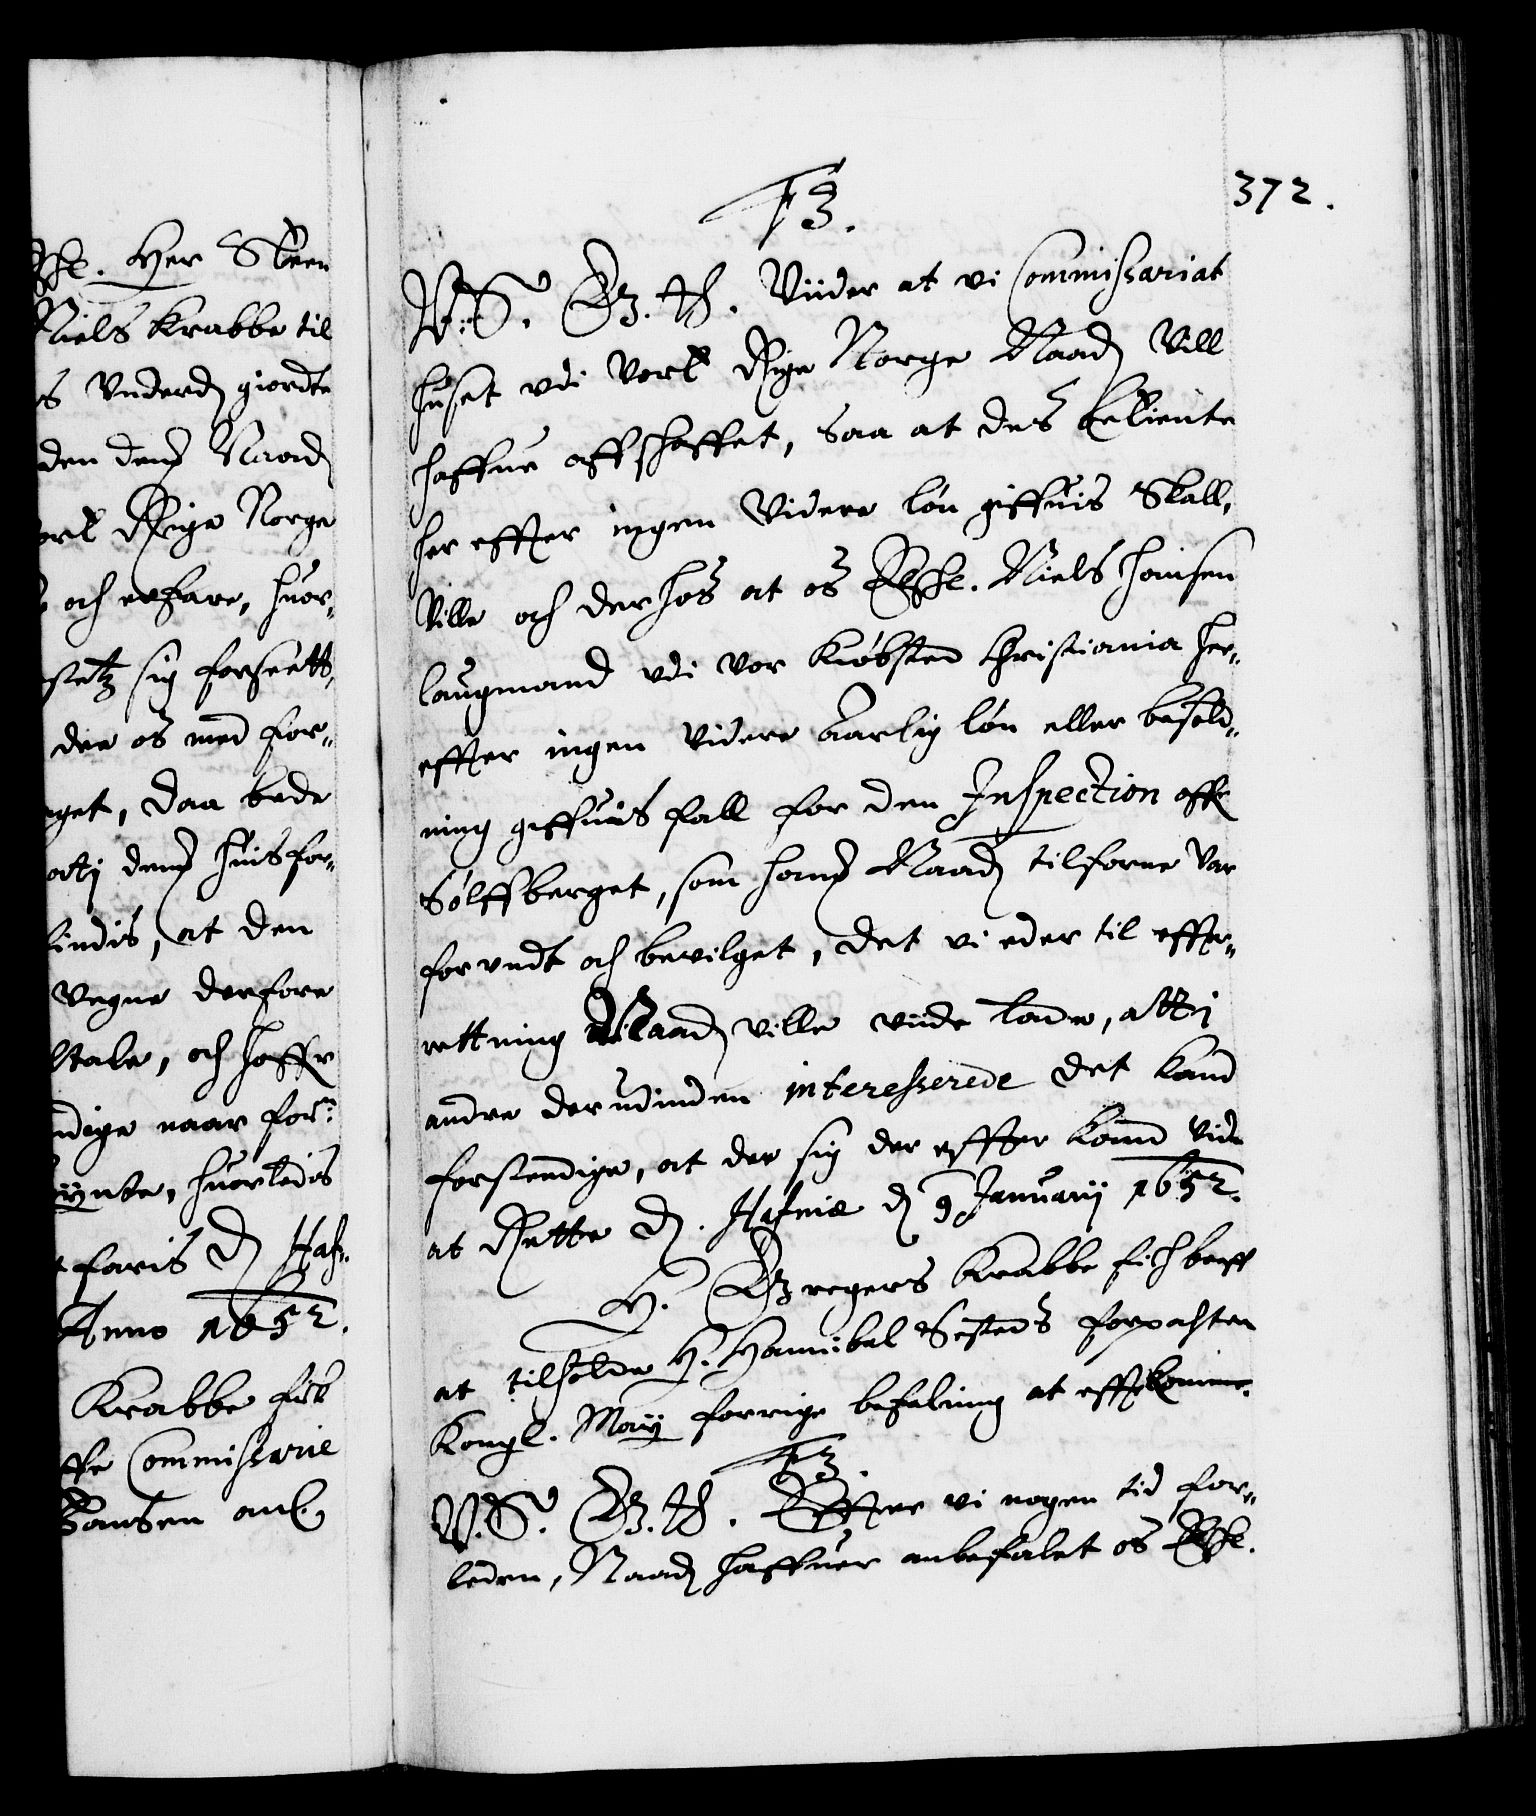 Her Steen
Niels Krabbe til
s Underd giordte
den dem Naad
ort Rige Norge
och erfare, huor¬
setz sig forseett,
der os med for¬
get, daa bede
att j dem huis for¬
findis, at den
vegne derfore
ltale, och haffr
ndige naar for:
huorledis
faris D Haf:
Anno 1652.
Krabbe fick
Commissarie
Hansen anl.
372.
F3.
V. S. G. T. Viider at vi Commissariat
huset udi vort Rige Norge Naad vill
haffue affskaffet, saa at des betiente
her effter ingen videre løn giffuis skall,
Ville och der hos at os Elschl. Niels Hansen
laugmand udi vor Kiøbsted Christiania her¬
effter ingen videre Aarlig løn eller besold¬
ning giffuis skall for den Inspection offr
Sølffberget, som ham Naad tilforne var
forundt och bevilget, det vi eder til effter¬
rettning Naad ville viide lade, att j
andre derudinden interesserede det kand
forstendige, at der sig der effter kand vide
at Rette D. Hafniæ D 9 Januarij 1652.
H. Gregers Krabbe fich breff
at tilholde H. Hannibal Sested forpachter
Kongl. May forrige befalning at effterkomme.
F3.
V. S. G. T. Efftter vi nogen tid for¬
leden, Naad haffuer anbefalet os Elschl.